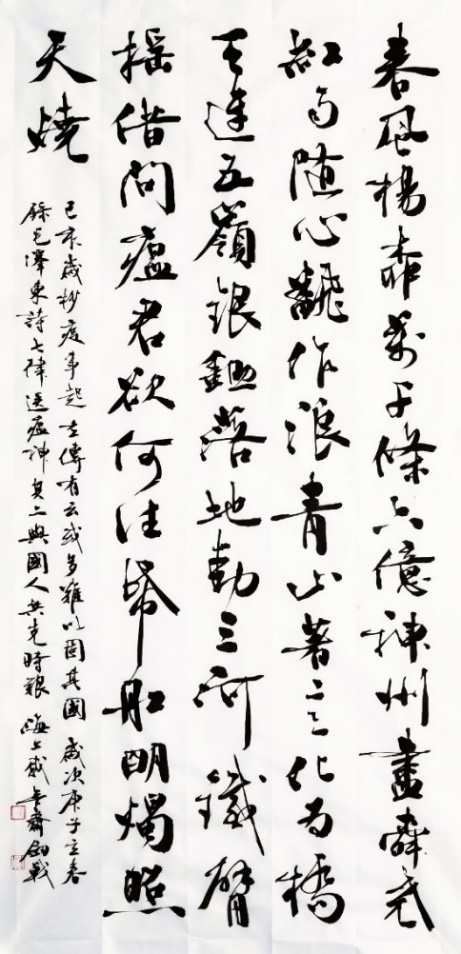 春風楊柳萬千條六億神州盡舜堯
紅雨隨心翻作浪青山著意化為橋
天連五嶺銀鋤落地動三河鐵臂
搖借問瘟君欲何往紙船明燭照
天燒
己亥歲杪疫事起左傳有云或多難以固其國歲次庚子立春
錄毛澤東詩七律送瘟神其二與國人共克時艱海上